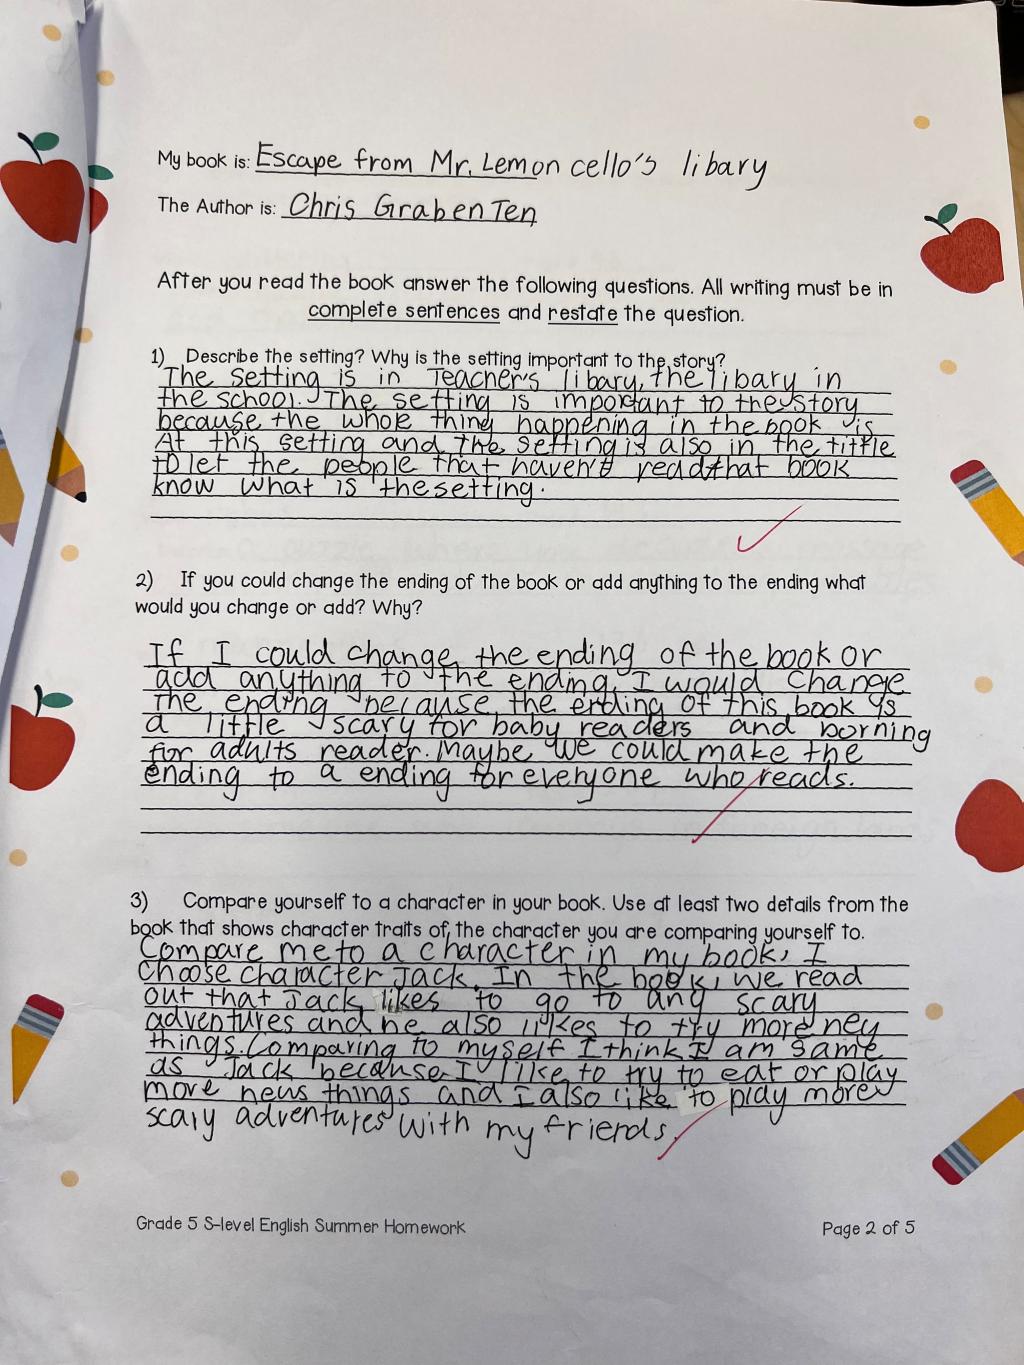 My book is: Escape from Mr. Lemon cello's libary
The Author is: Chris GrabenTen
After you read the book answer the following questions. All writing must be in
complete sentences and restate the question.
1) Describe the setting? Why is the setting important to the story?
The setting is in Teacher's libary, the libary in
the school. The setting is important to the story
because the whole thing happening in the book is
At this setting and the setting is also in the tittle
to let the people that haven't read that book
know what is the setting.
2) If you could change the ending of the book or add anything to the ending what
would you change or add? Why?
If I could change the ending of the book or
add anything to the ending, I would change
the ending because the ending of this book is
a little scary for baby readers and borning
for adults reader. Maybe we could make the
ending to a ending for everyone who reads.
3) Compare yourself to a character in your book. Use at least two details from the
book that shows character traits of the character you are comparing yourself to.
Compare me to a character in my book, I
choose character Jack. In the book, we read
out that Jack likes to go to any scary
adventures and he also likes to try more ney
things. Comparing to myself I think I am same
as Jack because I like to try to eat or play
more news things and I also like to play more
scary adventures with my friends.
Grade 5 S-level English Summer Homework
Page 2 of 5